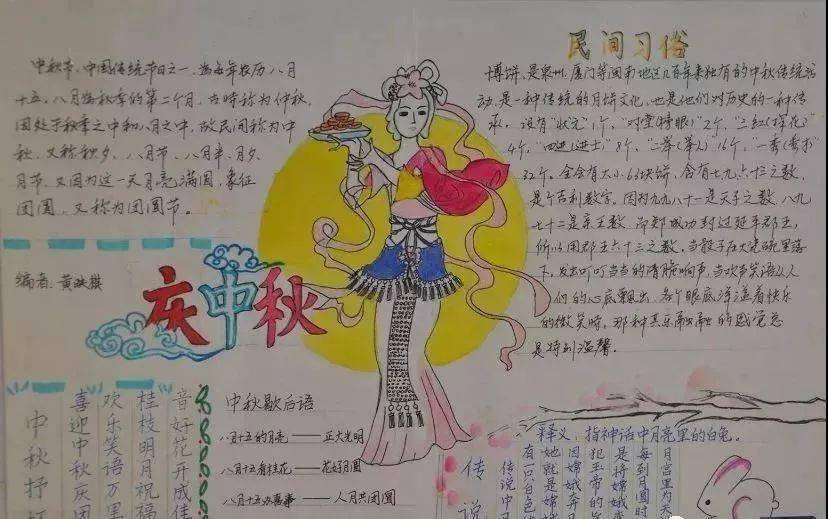 中秋节、中国传统节日之一，为每年农历八月
十五。八月为秋季的第二个月，古时称为仲秋，
因处于秋季之中和八月之中，故民间称为中
秋，又称秋夕、八月节、八月半、月夕、
月节，又因为这一天月亮满圆，象征
团圆，又称为团圆节。
编者：黄
庆中秋
民间习俗
博饼，是泉州、厦门等闽南地区几百年来独有的中秋传统活
动，是一种传统的月饼文化，也是他们对历史的一种传
承。设有"状元"1个，"对堂(榜眼)"2个，"三红(探花)
4个，"四进(进士)"8个，"二举(举人)16个，一秀(秀才)
32个。全会有大小63块饼，含有七九六十三之数，
是个吉利数字。因为九九八十一是天子之数，八九
七十二是亲王数，而郑成功封过延平郡王，
所以用郡王六十三之数。当骰子在大瓷碗里落
下，发出叮叮当当的清脆响声，当欢声笑语从人
们的心底飘出，各个眼底洋溢着快乐
的微笑时，那种其乐融融的感觉总
是特别温馨。
中秋抒
喜迎中秋庆团
欢乐笑语万里
桂枝明月祝福
音好花开成佳
中秋歇后语
八月十五的月亮——正大光明
八月十五看桂花——花好月圆
八月十五办喜事——人月共团圆
传说
释义：指神话中月亮里的白兔。
传说中
有只白色
她就是嫦
因嫦娥奔
犯玉帝的
是将嫦娥
每到月圆时
月宫里为天